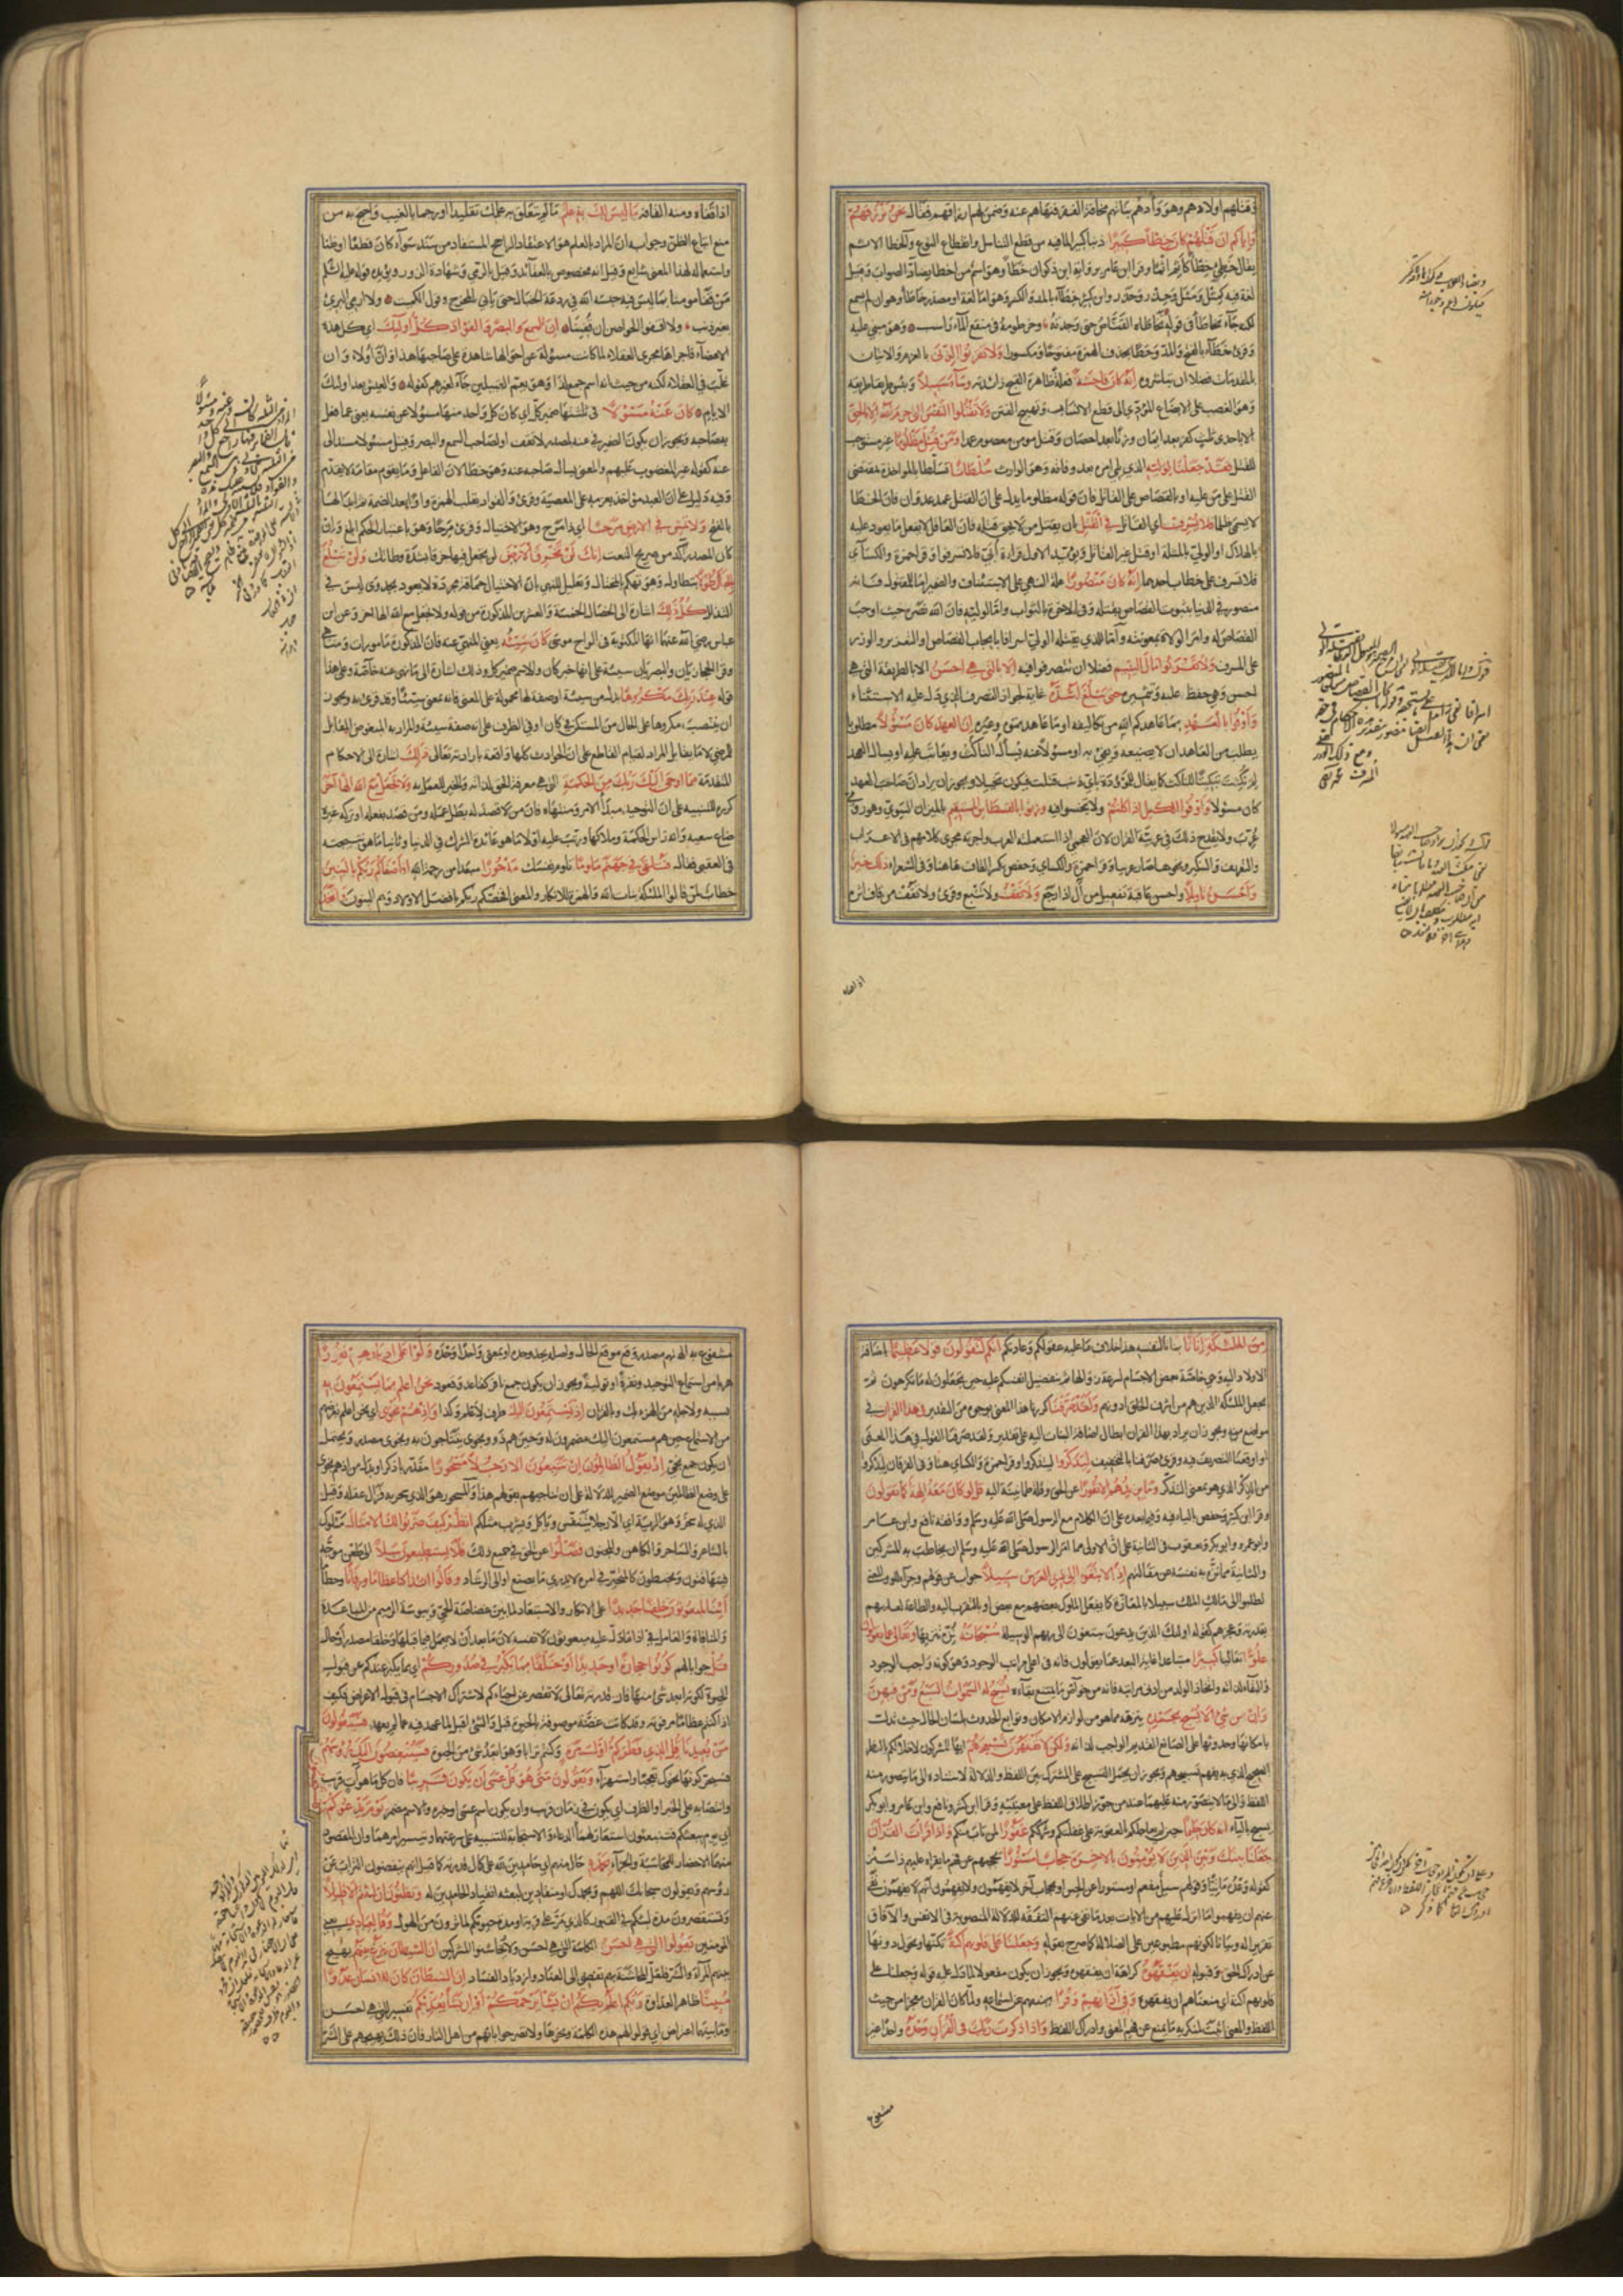 في قتلهم اولادهم وهو وأدهم بناتهم مخافة الفقر فنهاهم عنه وضمن لهم ارزاقهم فقال نحن نرزقهم
واياكم ان قتلهم كان خطأ كبيرا ذنبا كبيرا لما فيه من قطع التناسل وانقطاع النوع والخطأ الاثم
يقال خطئ خطأ كأثم اثما وقرأ ابن عامر برواية ابن ذكوان خطأ وهو اسم من اخطأ يضاد الصواب وقيل
لغة فيه كمثل ومثل وحذر وحذر وابن كثير خطاء بالمد والكسر وهو اما لغة او مصدر خاطأ وهو ان لم يسمع
لكنه جاء تخاطأ في قوله تخاطأه القناص حتى وجدته وخرطومه في منقع الماء راسب وهو مبني عليه
وقرئ خطاء بالفتح والمد وخطا بحذف الهمزة مفتوحا ومكسورا ولا تقربوا الزنى بالعزم والاتيان
بالمقدمات فضلا ان تباشروه انه كان فاحشة فعلة ظاهرة القبح زائدته وساء سبيلا وبئس طريقا طريقه
وهو الغصب على الابضاع المؤدي الى قطع الانساب وتهييج الفتن ولا تقتلوا النفس التي حرم الله الا بالحق
الا باحدى ثلث كفر بعد ايمان وزنا بعد احصان وقتل مومن معصوم عمدا ومن قتل مظلوما غير مستوجب
للقتل فقد جعلنا لوليه الذي يلي امره بعد وفاته وهو الوارث سلطانا تسلطا بالمواخذة بمقتضى
القتل على من عليه او بالقصاص على القاتل فان قوله مظلوما يدل على ان القتل عمد عدوان فان الخطأ
لا يسمى ظلما فلا يسرف اي القاتل في القتل بان يقتل من لا يحق قتله فان العاقل لا يفعل ما يعود عليه
بالهلاك او الولي بالمثلة او قتل غير القاتل ويؤيد الاول قراءة ابي فلا تسرفوا وقرأ حمزة والكسائي
فلا تسرف على خطاب احدهما انه كان منصورا علة النهي على الاستئناف والضمير اما للمقتول فانه
منصور في الدنيا بثبوت القصاص بقتله وفي الاخرة بالثواب واما لوليه فان الله نصره حيث اوجب
القصاص له وامر الولاة بمعونته واما للذي يقتله الولي اسرافا بايجاب القصاص او التعزير والوزر
على المسرف ولا تقربوا مال اليتيم فضلا ان تتصرفوا فيه الا بالتي هي احسن الا بالطريقة التي هي
احسن وهي حفظه عليه وتثميره حتى يبلغ اشده غاية لجواز التصرف الذي دل عليه الاستثناء
واوفوا بالعهد بما عاهدكم الله من تكاليفه او ما عاهدتموه وغيره ان العهد كان مسؤلا مطلوبا
يطلب من المعاهد ان لا يضيعه ويفي به او مسؤلا عنه فيسأل الناكث ويعاتب عليه او يسأل العهد
لم نكثت تبكيتا للناكث كما يقال للموؤدة باي ذنب قتلت فيكون تخييلا ويجوز ان يراد ان صاحب العهد
كان مسؤلا واوفوا الكيل اذا كلتم ولا تبخسوا فيه وزنوا بالقسطاس المستقيم بالميزان السوي وهو رومي
عرب ولا يقدح ذلك في عربية القران لان العجمي اذا استعملته العرب واجرته مجرى كلامهم في الاعراب
والتعريف والتنكير ونحوها صار عربيا وقرأ حمزة والكسائي وحفص بكسر القاف هاهنا وفي الشعراء ذلك خير
واحسن تأويلا واحسن عاقبة تفعيل من آل اذا رجع ولا تقف ولا تتبع وقرئ ولا تقف من قاف اثره
اذا قفاه
اذا قفاه ومنه القافة ما ليس لك به علم ما لم يتعلق به علمك تقليدا او رجما بالغيب واحتج به من
منع اتباع الظن وجوابه ان المراد بالعلم هو الاعتقاد الراجح المستفاد من سند سواء كان قطعا او ظنا
واستعماله لهذا المعنى شايع وقيل انه مخصوص بالعقائد وقيل بالرمي وشهادة الزور ويؤيده قوله عليه السلم
من قفا مومنا بما ليس فيه حبسه الله في ردغة الخبال حتى يأتي بالمخرج وقول الكميت ولا ارمي البرئ
بغير ذنب ولا اقفو الحواصن ان قفينا ان السمع والبصر والفؤاد كل اولئك اي كل هذه
الاعضاء فاجراها مجرى العقلاء لما كانت مسؤلة عن احوالها شاهدة على صاحبها هذا وان اولاء وان
غلب في العقلاء لكنه من حيث انه اسم جمع لذا وهو يعم القبيلين جاء لغيرهم كقوله والعيش بعد اولئك
الايام كان عنه مسؤلا في ثلثتها ضمير كل اي كان كل واحد منها مسؤلا عن نفسه يعني عما فعل
به صاحبه ويجوز ان يكون الضمير في عنه لمصدر لا تقف او لصاحب السمع والبصر وقيل مسؤلا مسند الى
عنه كقوله غير المغضوب عليهم والمعنى يسأل صاحبه عنه وهو خطأ لان الفاعل وما يقوم مقامه لا يتقدم
وفيه دليل على ان العبد مواخذ بعزمه على المعصية وقرئ والفواد بقلب الهمزة واوا بعد الضمة ثم ابدالها
بالفتح ولا تمش في الارض مرحا اي ذا مرح وهو الاختيال وقرئ مرحا وهو باعتبار الحكم ابلغ وان
كان المصدر آكد من صريح النعت انك لن تخرق الارض لن تجعل فيها خرقا بشدة وطأتك ولن تبلغ
الجبال طولا بتطاولك وهو تهكم بالمختال وتعليل للنهي بان الاختيال حماقة مجردة لا يعود بجدوى ليس في
التذلل كل ذلك اشارة الى الخصال الخمسة والعشرين المذكورة من قوله ولا تجعل مع الله الها اخر وعن ابن
عباس رضي الله عنهما انها المكتوبة في الواح موسى كان سيئه يعني المنهي عنه فان المذكورة مامورات ومناهي
وقرأ الحجازيان والبصريان سيئة على انها خبر كان والاسم ضمير كل وذلك اشارة الى ما نهى عنه خاصة وعلى هذا
قوله عند ربك مكروها بدل من سيئة او صفة لها محمولة على المعنى فانه بمعنى سيئا وقد قرئ به ويجوز
ان ينتصب مكروها على الحال من المستكن في كان او في الظرف على انه صفة سيئة والمراد به المبغوض المقابل
للمرضي لا ما يقابل المراد لقيام القاطع على ان الحوادث كلها واقعة بارادته تعالى ذلك اشارة الى الاحكام
المتقدمة مما اوحى اليك ربك من الحكمة التي هي معرفة الحق لذاته والخير للعمل به ولا تجعل مع الله الها اخر
كرره للتنبيه على ان التوحيد مبدأ الامر ومنتهاه فان من لا قصد له بطل عمله ومن قصد بفعله او تركه غيره
ضاع سعيه وانه رأس الحكمة وملاكها ورتب عليه اولا ما هو عائدة الشرك في الدنيا وثانيا ما هو نتيجته
في العقبى فقال فتلقى في جهنم ملوما تلوم نفسك مدحورا مبعدا من رحمة الله افاصفاكم ربكم بالبنين
خطاب لمن قالوا الملئكة بنات الله والهمزة للانكار والمعنى افخصكم ربكم بافضل الاولاد وهم البنون واتخذ
من الملئكة اناثا بناتا لنفسه هذا خلاف ما عليه عقولكم وعادتكم انكم لتقولون قولا عظيما باضافة
الاولاد اليه وهي خاصة بعض الاجسام لسرعة زوالها ثم بتفضيل انفسكم عليه حيث تجعلون له ما تكرهون ثم
بجعل الملئكة الذين هم من اشرف الخلق ادونهم ولقد صرفنا كررنا هذا المعنى بوجوه من التقدير في هذا القران في
مواضع منه ويجوز ان يراد بهذا القران ابطال اضافة البنات اليه على تقدير ولقد صرفنا القول في هذا المعنى
او اوقعنا التصريف فيه وقرئ صرفنا بالتخفيف ليذكروا ليتذكروا وقرأ حمزة والكسائي هنا وفي الفرقان ليذكروا
من الذكر الذي هو بمعنى التذكر وما يزيدهم الا نفورا عن الحق وقلة طمانينة اليه قل لو كان معه الهة كما تقولون
وقرأ ابن كثير وحفص بالياء فيه وفيما بعده على ان الكلام مع الرسول صلى الله عليه وسلم ووافقهما نافع وابن عامر
وابو عمرو وابو بكر ويعقوب في الثانية على ان الاولى مما امر الرسول صلى الله عليه وسلم ان يخاطب به المشركين
والثانية مما نزه به نفسه عن مقالتهم اذا لابتغوا الى ذي العرش سبيلا جواب عن قولهم وجزاء للو والمعنى
لطلبوا الى مالك الملك سبيلا بالمعازة كما يفعل الملوك بعضهم مع بعض او بالتقرب اليه والطاعة لعلمهم
بقدرته وعجزهم كقوله اولئك الذين يدعون يبتغون الى ربهم الوسيلة سبحانه ينزه تنزيها وتعالى عما يقولون
علوا تعاليا كبيرا متباعدا غاية البعد عما يقولون فانه في اعلى مراتب الوجود وهو كونه واجب الوجود
والبقاء لذاته واتخاذ الولد من ادنى مراتبه فانه من خواص ما يمتنع بقاءه تسبح له السموات السبع ومن فيهن
وان من شئ الا يسبح بحمده ينزهه مما هو من لوازم الامكان وتوابع الحدوث بلسان الحال حيث تدل
بامكانها وحدوثها على الصانع القديم الواجب لذاته ولكن لا تفقهون تسبيحهم ايها المشركون لاخلالكم بالنظر
الصحيح الذي به يفهم تسبيحهم ويجوز ان يحمل التسبيح على المشترك بين اللفظ والدلالة لاسناده الى ما يتصور منه
اللفظ والى ما لا يتصور منه وعليهما عند من جوز اطلاق اللفظ على معنييه وقرأ ابن كثير ونافع وابن عامر وابو بكر
يسبح بالياء انه كان حليما حين لم يعاجلكم بالعقوبة على غفلتكم وشرككم غفورا لمن تاب منكم واذا قرأت القران
جعلنا بينك وبين الذين لا يؤمنون بالاخرة حجابا مستورا يحجبهم عن فهم ما تقرأه عليهم ذا ستر
كقوله وعده مأتيا وقولهم سيل مفعم او مستورا عن الحس او بحجاب آخر لا يفهمون ولا يفهمون انهم لا يفهمون نفى
عنهم ان يفهموا ما انزل عليهم من الايات بعد ما نفى عنهم التفقه للدلالة المنصوبة في الانفس والآفاق
تقريرا له وبيانا لكونهم مطبوعين على الضلالة كما صرح بقوله وجعلنا على قلوبهم اكنة تكنها وتحول دونها
عن ادراك الحق وقبوله ان يفقهوه كراهة ان يفقهوه ويجوز ان يكون مفعولا لما دل عليه قوله وجعلنا على
قلوبهم اكنة اي منعناهم ان يفقهوه وفي آذانهم وقرا يمنعهم عن استماعه ولما كان القران معجزا من حيث
اللفظ والمعنى اثبت لمنكريه ما يمنع عن فهم المعنى وادراك اللفظ واذا ذكرت ربك في القران وحده واحدا غير
مشفوع
مشفوع به الهتهم مصدر وقع موقع الحال واصله يحد وحده او بمعنى واحدا وحده ولوا على ادبارهم نفورا
هربا من استماع التوحيد ونفرة او تولية ويجوز ان يكون جمع نافر كقاعد وقعود نحن اعلم بما يستمعون به
بسببه ولاجله من الهزء بك وبالقران اذ يستمعون اليك ظرف لاعلم وكذا واذ هم نجوى اي نحن اعلم بغرضهم
من الاستماع حين هم مستمعون اليك مضمرون له وحين هم ذوو نجوى يتناجون به ونجوى مصدر ويحتمل
ان يكون جمع نجي اذ يقول الظالمون ان تتبعون الا رجلا مسحورا مقدر باذكر او بدل من اذ هم نجوى
على وضع الظالمين موضع الضمير للدلالة على ان تناجيهم بقولهم هذا والمسحور هو الذي سحر به فزال عقله وقيل
الذي له سحر وهو الرئة اي الا رجلا يتنفس وياكل ويشرب مثلكم انظر كيف ضربوا لك الامثال مثلوك
بالشاعر والساحر والكاهن والمجنون فضلوا عن الحق في جميع ذلك فلا يستطيعون سبيلا الى طعن موجه
فيتهافتون ويخبطون كالمتحير في امره لا يدري ما يصنع او الى الرشاد وقالوا ائذا كنا عظاما ورفاتا وحطاما
أئنا لمبعوثون خلقا جديدا على الانكار والاستبعاد لما بين غضاضة الحي ويبوسة الرميم من المباعدة
والمنافاة والعامل في اذا ما دل عليه مبعوثون لا نفسه لان ما بعد ان لا يعمل فيما قبلها وخلقا مصدر او حال
قل جوابا لهم كونوا حجارة او حديدا او خلقا مما يكبر في صدوركم اي مما يكبر عندكم عن قبول
الحيوة لكونه ابعد شئ منها فان قدرته تعالى لا تقصر عن احيائكم لاشتراك الاجسام في قبول الاعراض فكيف
اذا كنتم عظاما مرفوتة وقد كانت غضة موصوفة بالحيوة قبل والشئ اقبل لما عهد فيه مما لم يعهد فسيقولون
من يعيدنا قل الذي فطركم اول مرة وكنتم ترابا وهو ابعد شئ من الحيوة فسينغضون اليك رؤسهم
فسيحركونها نحوك تعجبا واستهزاء ويقولون متى هو قل عسى ان يكون قريبا فان كل ما هو آت قريب
وانتصابه على الخبر او الظرف اي يكون في زمان قريب وان يكون اسم عسى او خبره والاسم مضمر يوم يدعوكم
اي يوم يبعثكم فتنبعثون استعار لهما الدعاء والاستجابة للتنبيه على سرعتهما وتيسر امرهما وان المقصود
منهما الاحضار للمحاسبة والجزاء بحمده حال منهم اي حامدين الله على كمال قدرته كما قيل انهم ينفضون التراب عن
رؤسهم ويقولون سبحانك اللهم وبحمدك او منقادين لبعثه انقياد الحامدين له وتظنون ان لبثتم الا قليلا
وتستقصرون مدة لبثكم في القبور كالذي مر على قرية او مدة حيوتكم لما ترون من الهول وقل لعبادي يعني
المومنين يقولوا التي هي احسن الكلمة التي هي احسن ولا تخاشنوا المشركين ان الشيطان ينزغ بينهم يهيج
بينهم المراء والشر فلعل المخاشنة بهم تفضي الى العناد وازدياد الفساد ان الشيطان كان للانسان عدوا
مبينا ظاهر العداوة ربكم اعلم بكم ان يشأ يرحمكم او ان يشأ يعذبكم تفسير للتي هي احسن
وما بينهما اعتراض اي قولوا لهم هذه الكلمة ونحوها ولا تصرحوا بانهم من اهل النار فان ذلك يهيجهم على الشر